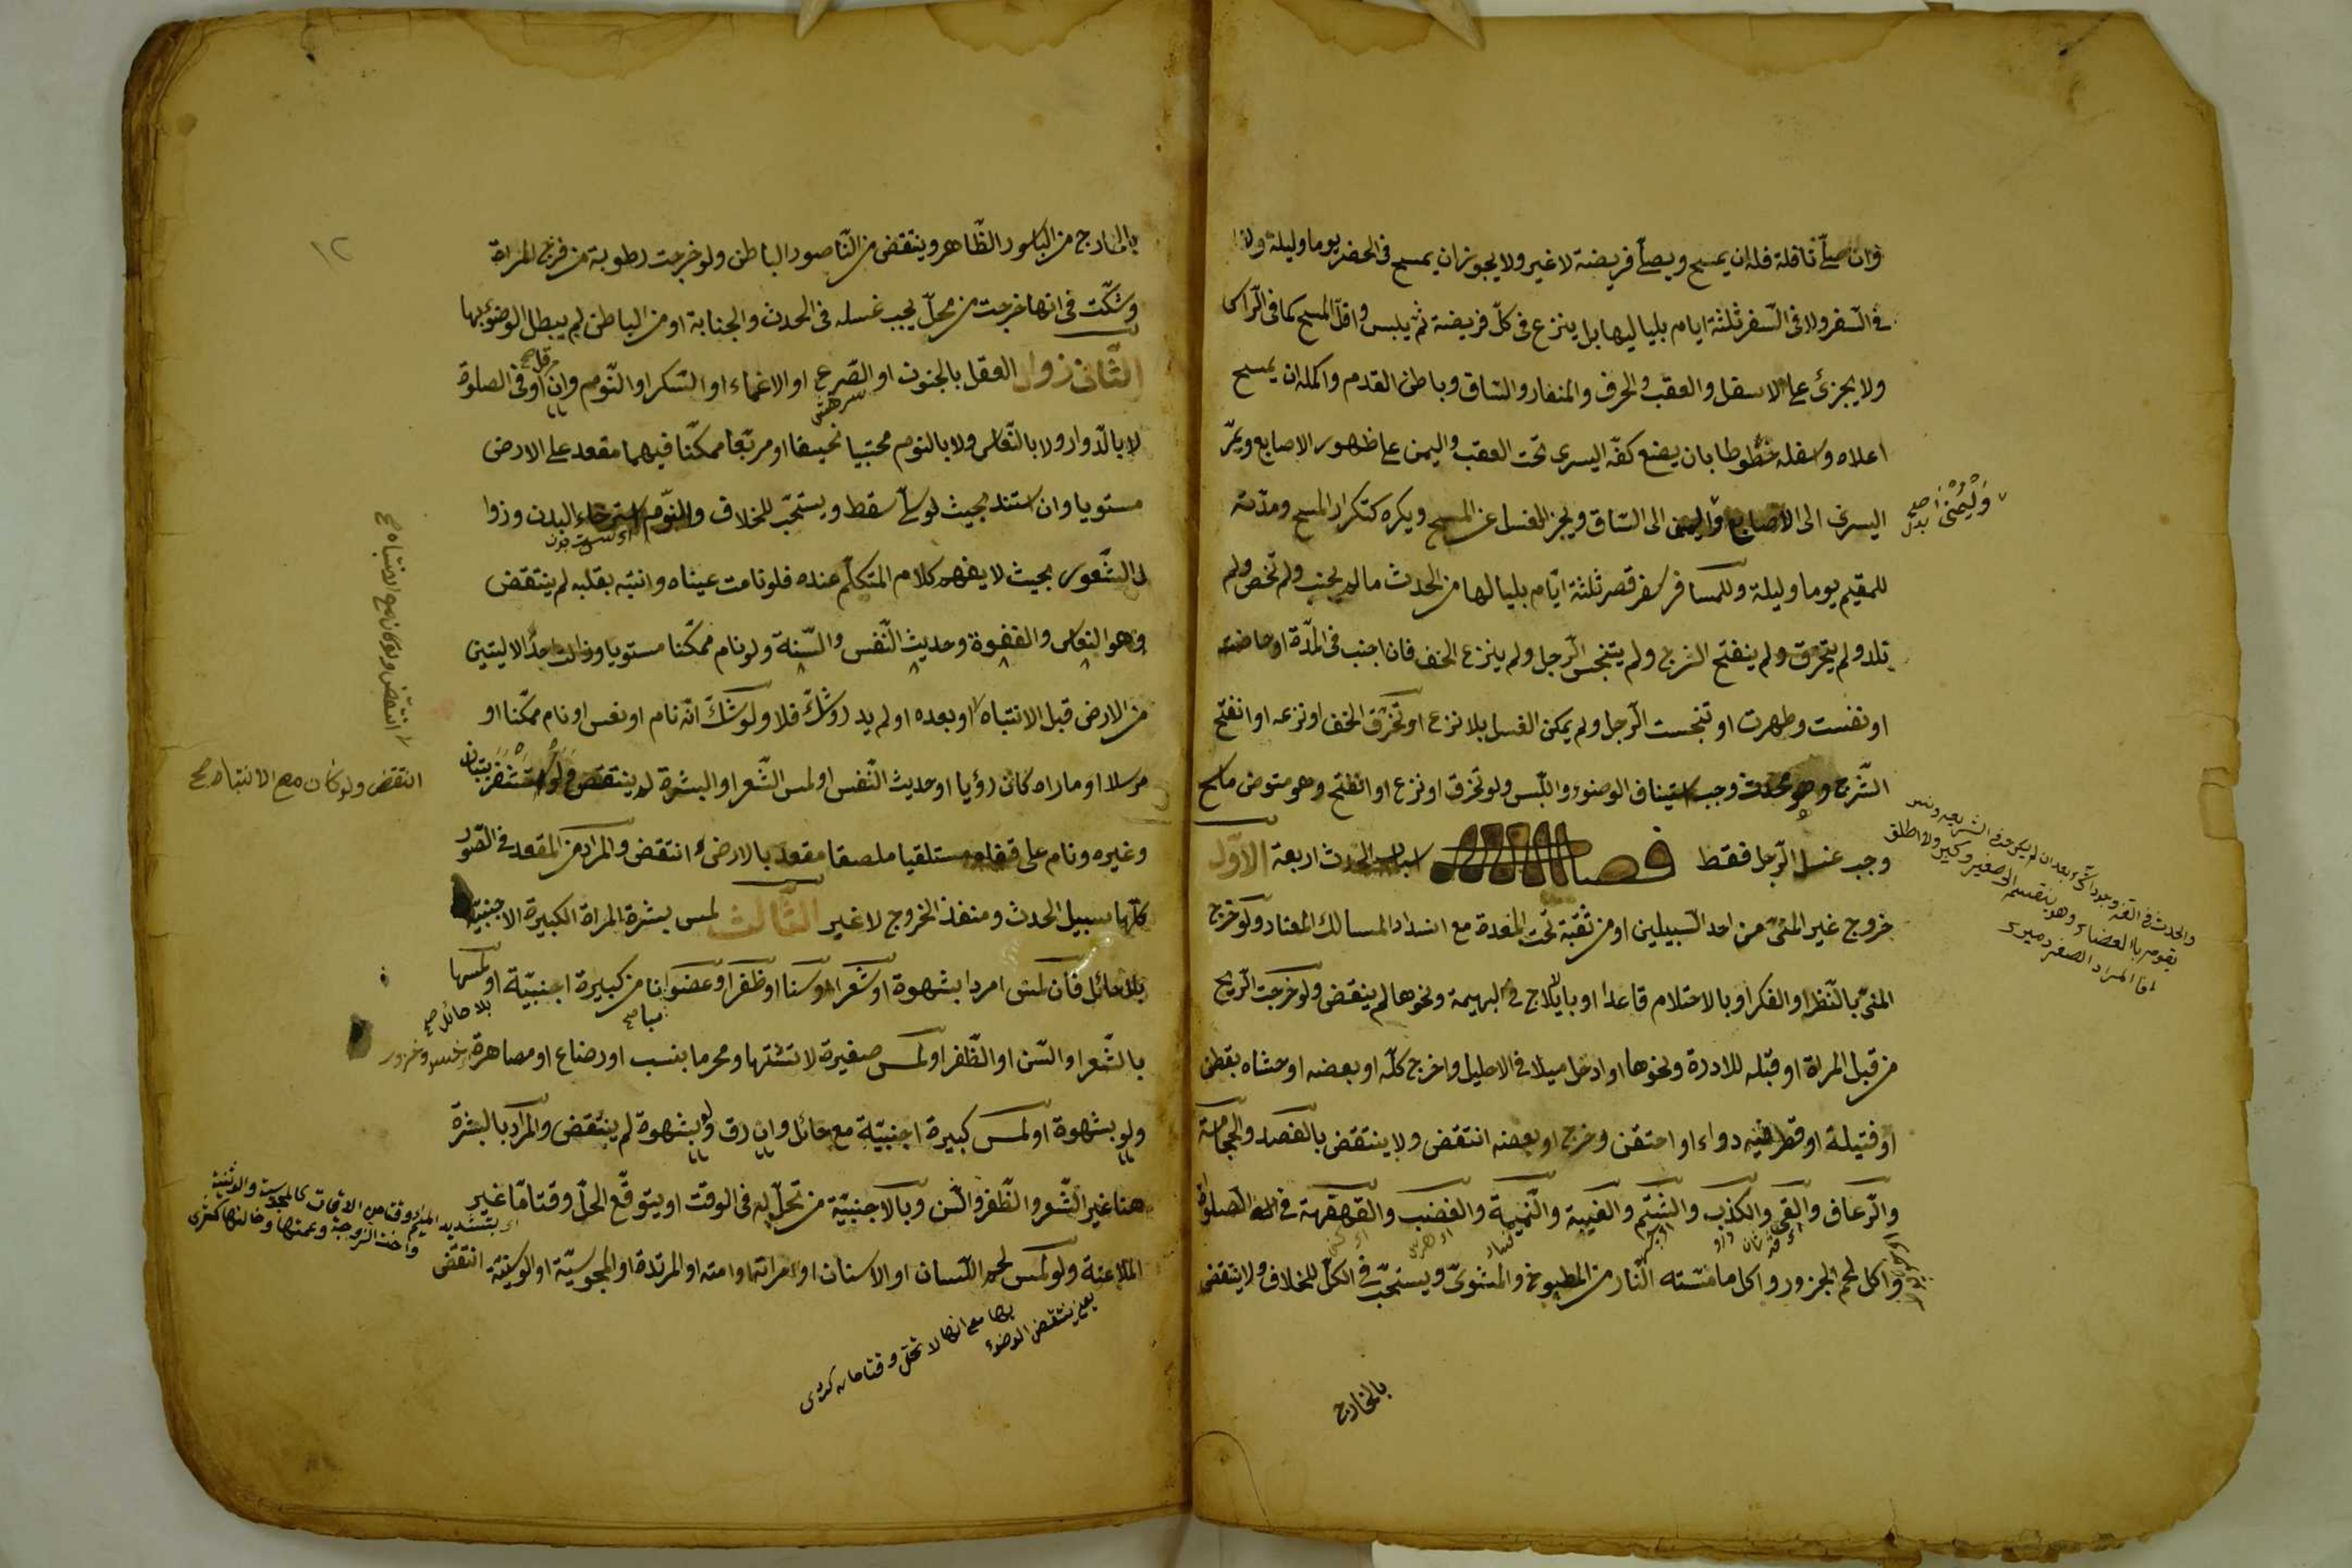 وان صلّى نافلة فله ان يمسح ويصلّى فريضة لا غير ولا يجوز ان يمسح فى الحضر يوما وليلة ولا
فى السّفر ولا فى السّفر ثلثة ايام بلياليها بل ينزع فى كلّ فريضة ثم يلبس واقلّ المسح كما فى الرّاس
ولا يجزئ على الاسفل والعقب والحرف والساق وباطن القدم واكمله ان يمسح
اعلاه واسفله خطوطا بان يضع كفّه اليسرى تحت العقب واليمنى على ظهور الاصابع ويمرّ
اليسرى الى الاصابع واليمنى الى السّاق ويجزئ الغسل عن المسح ويكره كتكرار المسح ومدّته
للمقيم يوما وليلة وللمسافر سفر قصر ثلثة ايّام بلياليها من الحدث ما لم يجنب ولم تحض ولم
تلد ولم يتخرّق ولم ينفتح الشرج ولم يتنجس الرّجل ولم ينزع الخف فان اجنب فى المدّة او حاضت
او نفست وطهرت او تنجست الرّجل ولم يمكن الغسل بلا نزع او تخرّق الخف او نزعه او انفتح
الشّرج وهو محدث وجب استيناف الوضوء واللّبس ولو تخرق او نزع او انفتح وهو متوض ماسح
وجب غسل الرّجل فقط فصل اسباب الحدث اربعة الاوّل
خروج غير المنىّ من احد السّبيلين او من ثقبة تحت المعدة مع انسداد المسالك المعتاد ولو خرج
المنىّ بالنّظر او الفكر او بالاحتلام قاعدا او بايلاج فى البهيمة ونحوها لم ينقض ولو خرجت الرّيح
من قبل المراة او قبله للادرة ونحوها او ادخل ميلا فى الاحليل واخرج كلّه او بعضه او حشاه بقطن
او فتيلة او قطر فيه دواء او احتقن وخرج او بعضه انتقض ولا ينتقض بالفصد والحجامة
والرّعاف والقىء والكذب والشّتم والغيبة والنّميمة والغضب والقهقهة فى الصلوة
واكل لحم الجزور واكل ما مسّته النّار من المطبوخ والمشوىّ ويستحبّ فى الكلّ للخلاف ولا ينتقض
وَلْيُمْنى بدل صح
بالخارج
١٢
بالخارج من الباسور الظّاهر وينتقض من النّاصور الباطن ولو خرجت رطوبة من فرج المراة
وشكّت فى انها خرجت من محلّ يجب غسله فى الحدث والجنابة او من الباطن لم يبطل الوضوء بها
الثّانى زوال العقل بالجنون او الصّرع او الاغماء او السّكر او النّوم وان قلّ او فى الصلوة
لا بالدّوار ولا بالنّعاس ولا بالنوم محتبيا نحيفا او مربّعا ممكّنا فيهما مقعد على الارض
مستويا وان استند بحيث لو سلّ سقط ويستحبّ للخلاف والنّوم استرخاء البدن وزوا
ل الشّعور بحيث لا يفهم كلام المتكلّم عنده فلو نامت عيناه وانتبه بقلبه لم ينتقض
وهو النعاس والغفوة وحديث النّفس والسّنة ولو نام ممكّنا مستويا وزالت احد الاليتين
من الارض قبل الانتباه او بعده او لم يدر وشكّ فلا ولو شكّ انّه نام او نعس او نام ممكّنا او
مرسلا او ما راه كان رؤيا او حديث النّفس او لمس الشّعر او البشرة لم ينتقض ولو استثفر بتبان
وغيره ونام على قفاه مستلقيا ملصقا مقعد بالارض انتقض والمراد من المقعد فى الصّور
كلّها سبيل الحدث ومنفذ الخروج لا غير الثّالث لمس بشرة المراة الكبيرة الاجنبيّة
بلا حائل فان لمس امردا بشهوة او شعرا او سنا او ظفرا او عضوا مبانا من كبيرة اجنبيّة او لمسها
بالشّعر او السّن او الظّفر او لمس صغيرة لا تشتها ومحرما بنسب او رضاع او مصاهرة
ولو بشهوة او لمس كبيرة اجنبيّة مع حائل وان رق ولو بشهوة لم ينتقض والمراد بالبشرة
هنا غير الشّعر والظّفر والسّن وبالاجنبيّة من تحلّ له فى الوقت او يتوقّع الحلّ وقتا مّا غير
الملاعنة ولو لمس لحم اللّسان او الاسنان او امراته او امته او المرتدة او المجوسيّة او الوثنيّة انتقض
انتقض ولو كان مع الانتباه صح
انتقض ولو كان مع الانتباه صح
بلا حائل صح
يعنى ينتقض الوضوء
بها مع انها لا تحلّ وقتا ما